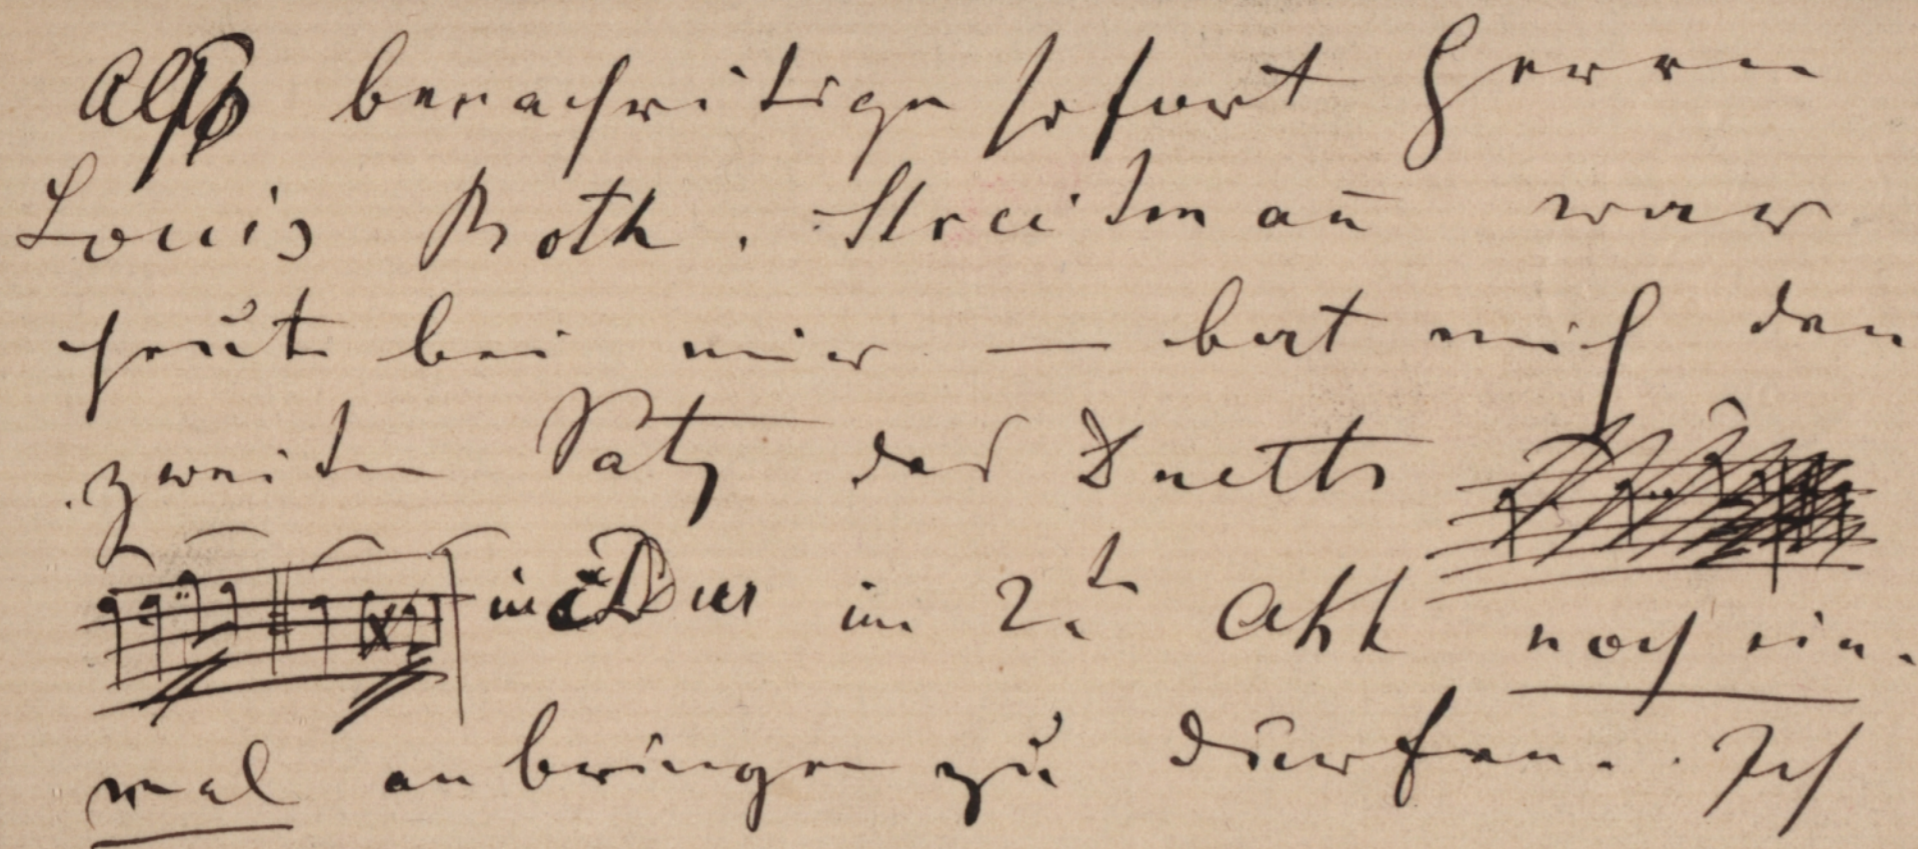 Also benachrichtige sofort Herrn
Louis Roth. Streitmann̄ war
heute bei mir — bat mich den
zweiten Satz des Duetts
in D Dur im 2t Akt noch ein-
mal anbringen zu dürfen. Ich